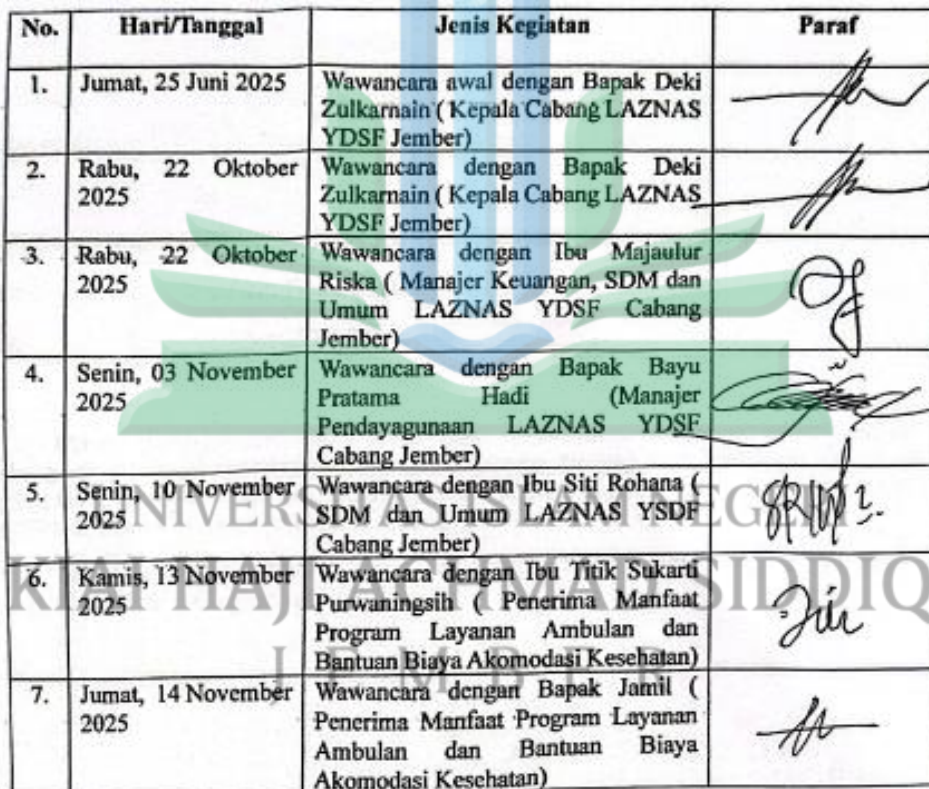 No. Hari/Tanggal Jenis Kegiatan Paraf
1. Jumat, 25 Juni 2025 Wawancara awal dengan Bapak Deki
Zulkarnain ( Kepala Cabang LAZNAS
YDSF Jember)
2. Rabu, 22 Oktober Wawancara dengan Bapak Deki
2025 Zulkarnain ( Kepala Cabang LAZNAS
YDSF Jember)
3. Rabu, 22 Oktober Wawancara dengan Ibu Majaulur
2025 Riska ( Manajer Keuangan, SDM dan
Umum LAZNAS YDSF Cabang
Jember)
4. Senin, 03 November Wawancara dengan Bapak Bayu
2025 Pratama Hadi (Manajer
Pendayagunaan LAZNAS YDSF
Cabang Jember)
5. Senin, 10 November Wawancara dengan Ibu Siti Rohana (
2025 SDM dan Umum LAZNAS YSDF
Cabang Jember)
6. Kamis, 13 November Wawancara dengan Ibu Titik Sukarti
2025 Purwaningsih ( Penerima Manfaat
Program Layanan Ambulan dan
Bantuan Biaya Akomodasi Kesehatan)
7. Jumat, 14 November Wawancara dengan Bapak Jamil (
2025 Penerima Manfaat Program Layanan
Ambulan dan Bantuan Biaya
Akomodasi Kesehatan)
UNIVERSITAS ISLAM NEGERI
KIAI HAJI ACHMAD SIDDIQ
JEMBER